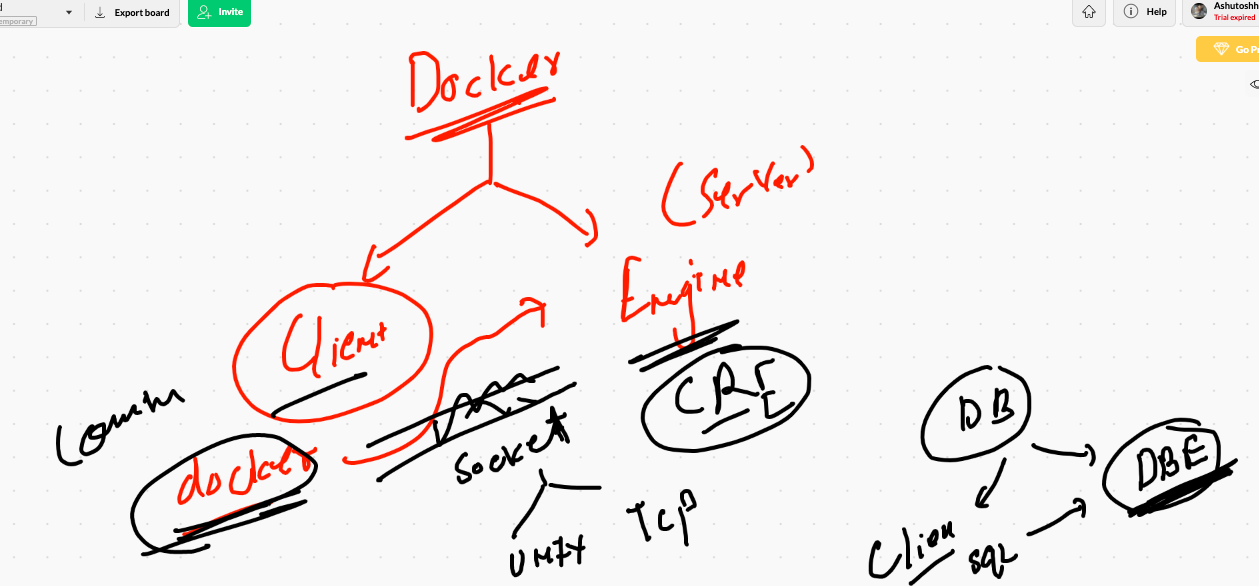 emporary
Export board
Invite
Help
Ashutoshh
Trial expired
Go Pr
Docker
(Server)
Engine
Client
CRE
docker
Socket
UNIX
TCP
DB
DBE
Client
SQL